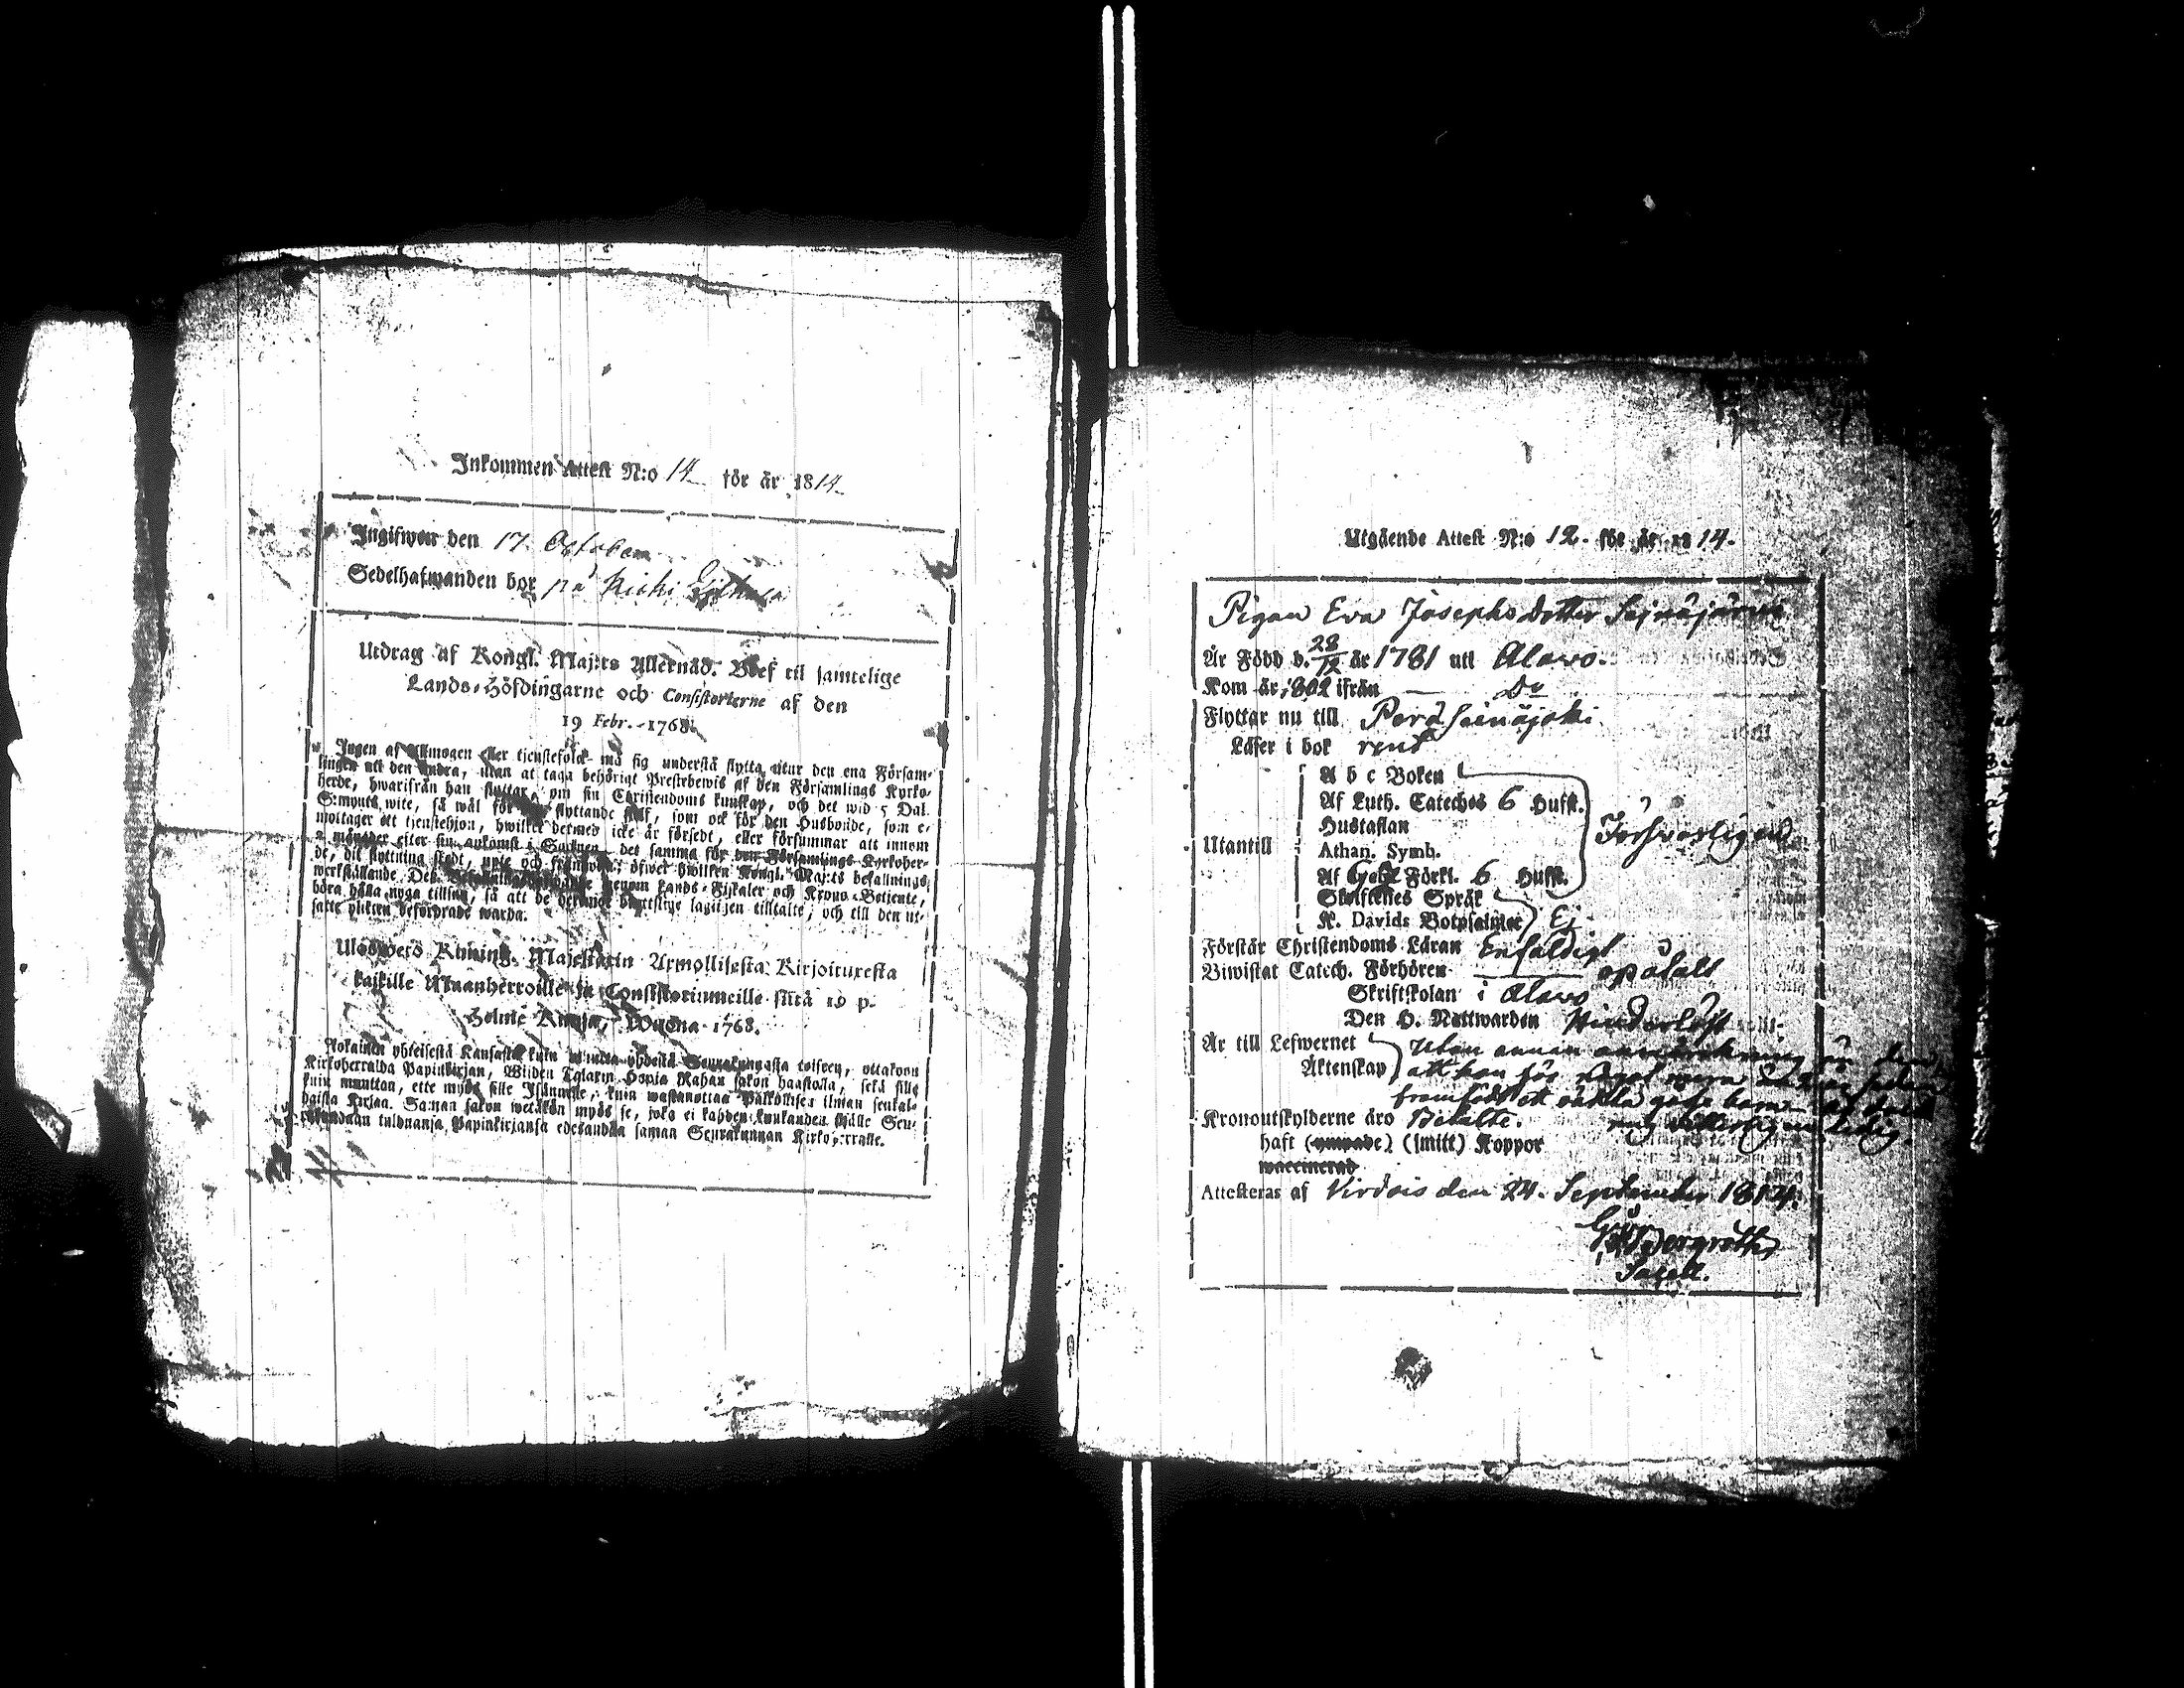 Inkommen Attest N:o 14 för år 1814
Ingifwen den 17 October
Sedelhafwanden bor på
Utdrag af Kongl. Maj:ts Allernåd. Bref til samtelige
Lands-Höfdingarne och Consistorierne af den
19 Febr. 1768.
Ingen af Allmogen eller tjenstefolck må sig understå flytta utur den ena Försam-
lingen till den andra, utan at taga behörigt Prestebewis af den Församlings Kyrko-
herde, hwarifrån han flyttar, om sin Christendoms kunskap, och det wid 5 Dal.
S:mynts wite, så wäl för den flyttande sjelf, som ock för den Husbonde, som e-
mottager ett tjenstehjon, hwilket dermed icke är försedt, eller försummar att innom
2 månader efter sin ankomst i Socknen det samma för den Församlings Kyrkoher-
de, dit flyttning skedt, upte och framwisa; öfwer hwilken Kongl. Maj:ts befallnings
werkställande Des genom Lands-Fiskaler och Krono-Betjente,
böra hålla noga tillsyn, så att de brottslige lagligen tilltalte, och till den ut-
satte plikten befordrade warda.
Ulosweto Kuning. Majestätin Armollisesta Kirjoituxesta
kaikille Maanherroille ja Consistoriumeille siitä 19 p.
Helme Kuusa, Wuonna 1768.
Kirkoherralda Papinkirjan, Wiiden Talarin Hopia Rahan sakon haastolla, sekä sille
kuin muuttaa, ette myös sille Isännelle, kuin wastanottaa Palkollisen ilman senkal-
daista Kirjaa. Saman sakon wetäkön myös se, joka ei kahden kuukauden sisälle Seu-
rakundaan tulduansa Papinkirjansa edesandaa saman Seurakunnan Kirkoherralle.
Utgående Attest N:o 12. för år 1814.
Pigan Eva Josephs dotter Seinäjärvi
Är Född d. 28/12 år 1781 uti Alavo.
Kom år 1802 ifrån — Do
Flyttar nu till Perä Seinäjoki
Läser i bok rent
A b c Boken
Af Luth. Cateches 6 Hufst.
Hustaflan
Utantill Athan. Symb. Försvarligen
Af Förkl. 6 Hufst.
Skriftenes Språk
K. Davids Botpsalmer Ej
Förstår Christendoms Läran Enfaldigt
Biwistat Catech. Förhören — opåtalt
Skriftskolan i Alavo
Den H. Nattwarden Hinderlöst
Är till Lefwernet utan annan anmärkning än den,
Äktenskap att hon
framfödt ett oäkta barn
Kronoutskylderne äro Betalte. ledig.
haft (ympade) (smitt) Koppor
waccinerad
Attesteras af Virdois den 24. September 1814.
Sacell.